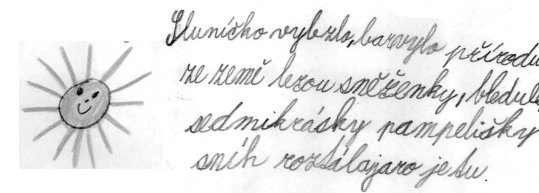 Sluníčko vybzlo, barvylo přírodu
ze země lezou sněženky, bledule,
sedmikrásky pampelišky
sníh roztálajaro je tu.